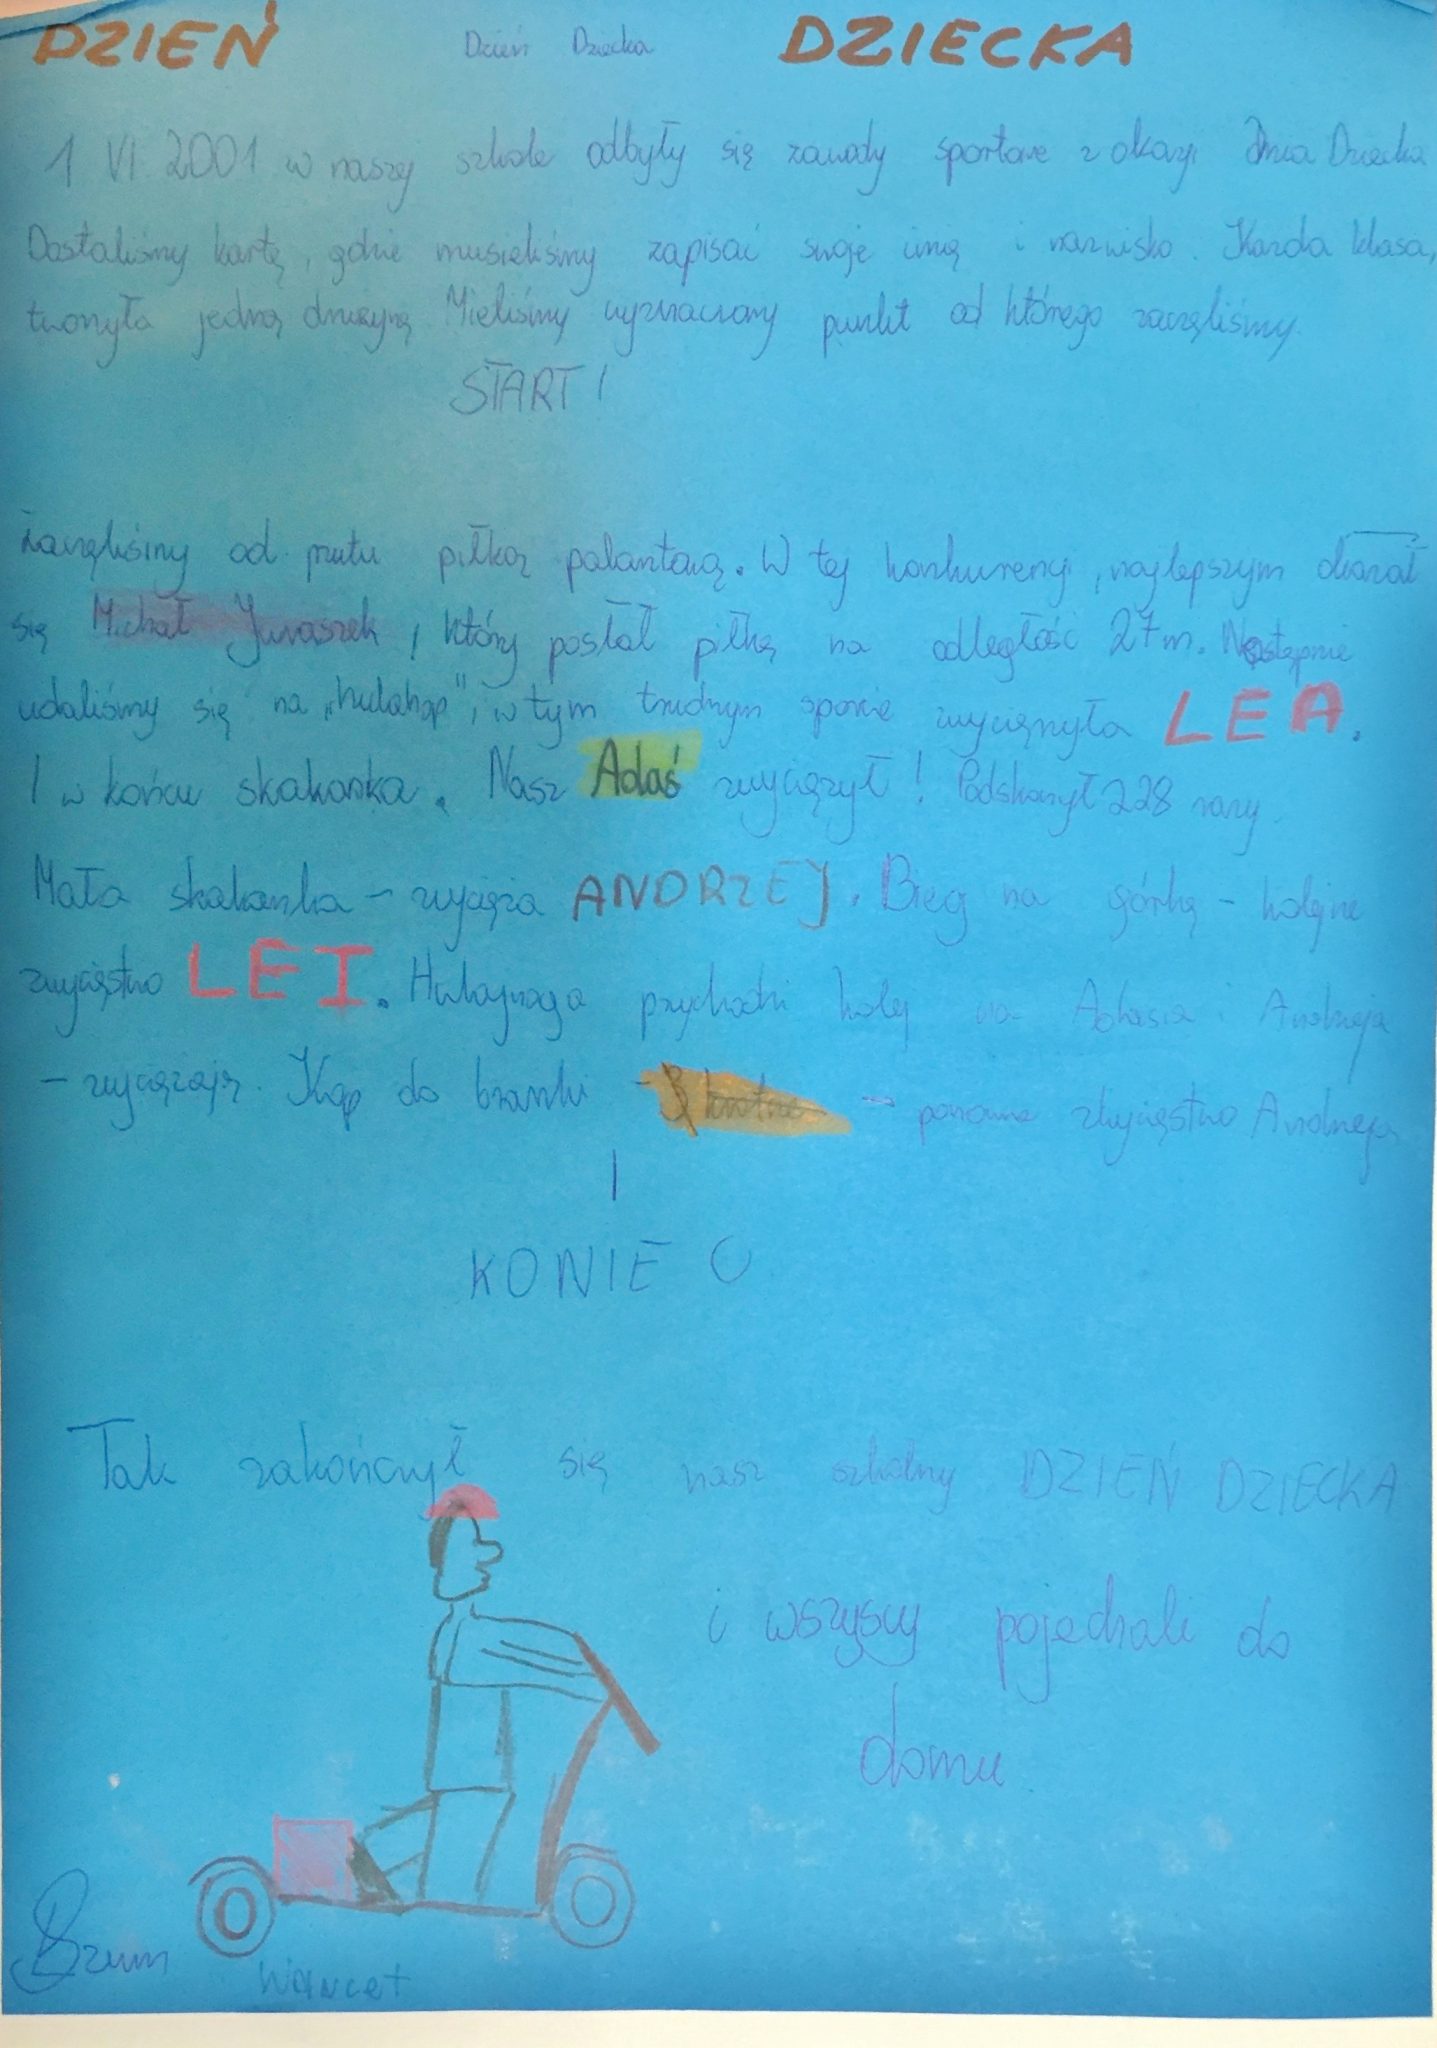 DZIEŃ Dzień Dziecka DZIECKA
1 VI 2001 w naszej szkole odbyły się zawody sportowe z okazji Dnia Dziecka
Dostaliśmy kartę, gdzie musieliśmy zapisać swoje imię i nazwisko. Każda klasa,
tworzyła jedną drużynę. Mieliśmy wyznaczony punkt od którego zaczęliśmy.
START!
Zaczęliśmy od rzutu piłką palantową. W tej konkurencji, najlepszym okazał
się Michał Juraszek, który posłał piłkę na odległość 27m. Następnie
udaliśmy się na „hulahop", w tym trudnym sporcie zwyciężyła LEA.
I w końcu skakanka. Nasz Adaś zwyciężył! Podskoczył 228 razy.
Mała skakanka - zwycięża ANDRZEJ. Bieg na górkę - kolejne
zwycięstwo LEI. Hulajnoga przychodzi kolej na Adasia i Andrzeja
- zwyciężają. Kop do bramki - 3 krotne - ponowne zwycięstwo Andrzeja
I
KONIEC
Tak zakończył się nasz szkolny DZIEŃ DZIECKA
i wszyscy pojechali do
domu
Brum